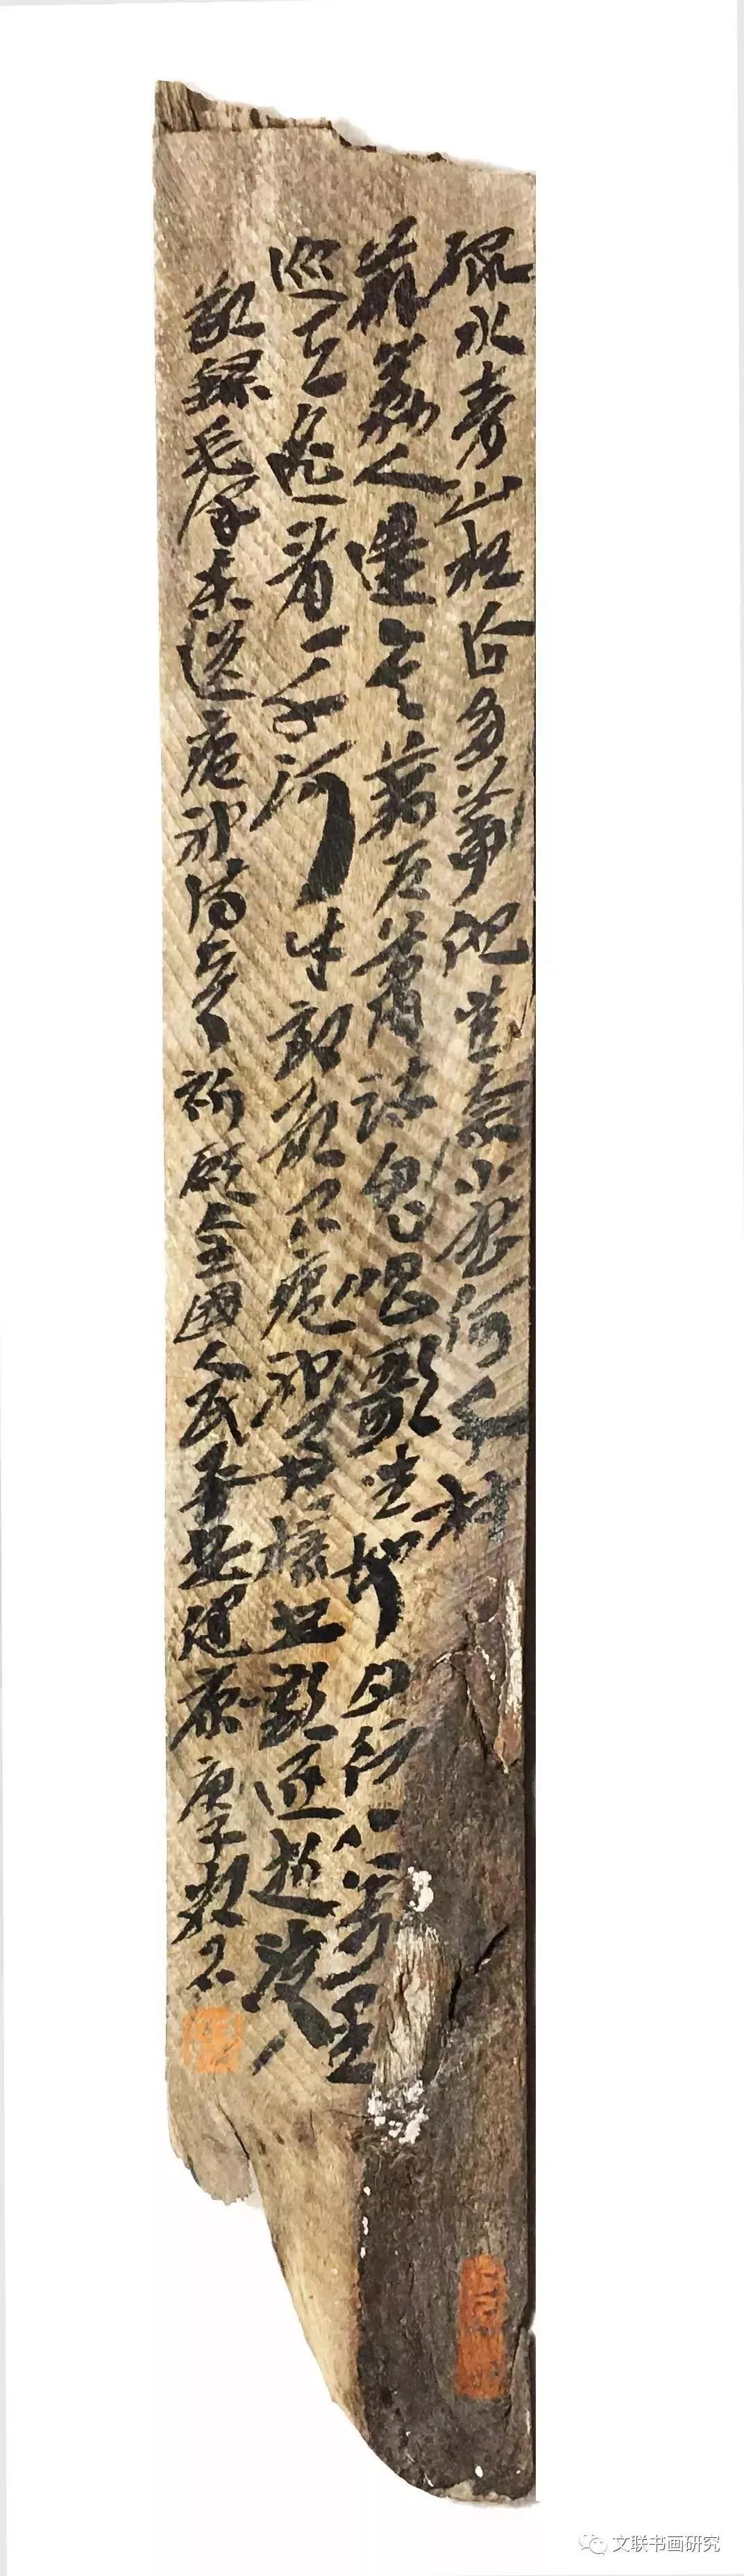 綠水青山枉自多華佗無奈小蟲何千村
薜荔人遺矢萬户蕭疏鬼唱歌坐地日行八万里
巡天遥看一千河牛郎欲问瘟神事一樣悲歡逐逝波
敬録毛泽东送瘟神詩 祈愿全國人民平安健康庚子
文联书画研究